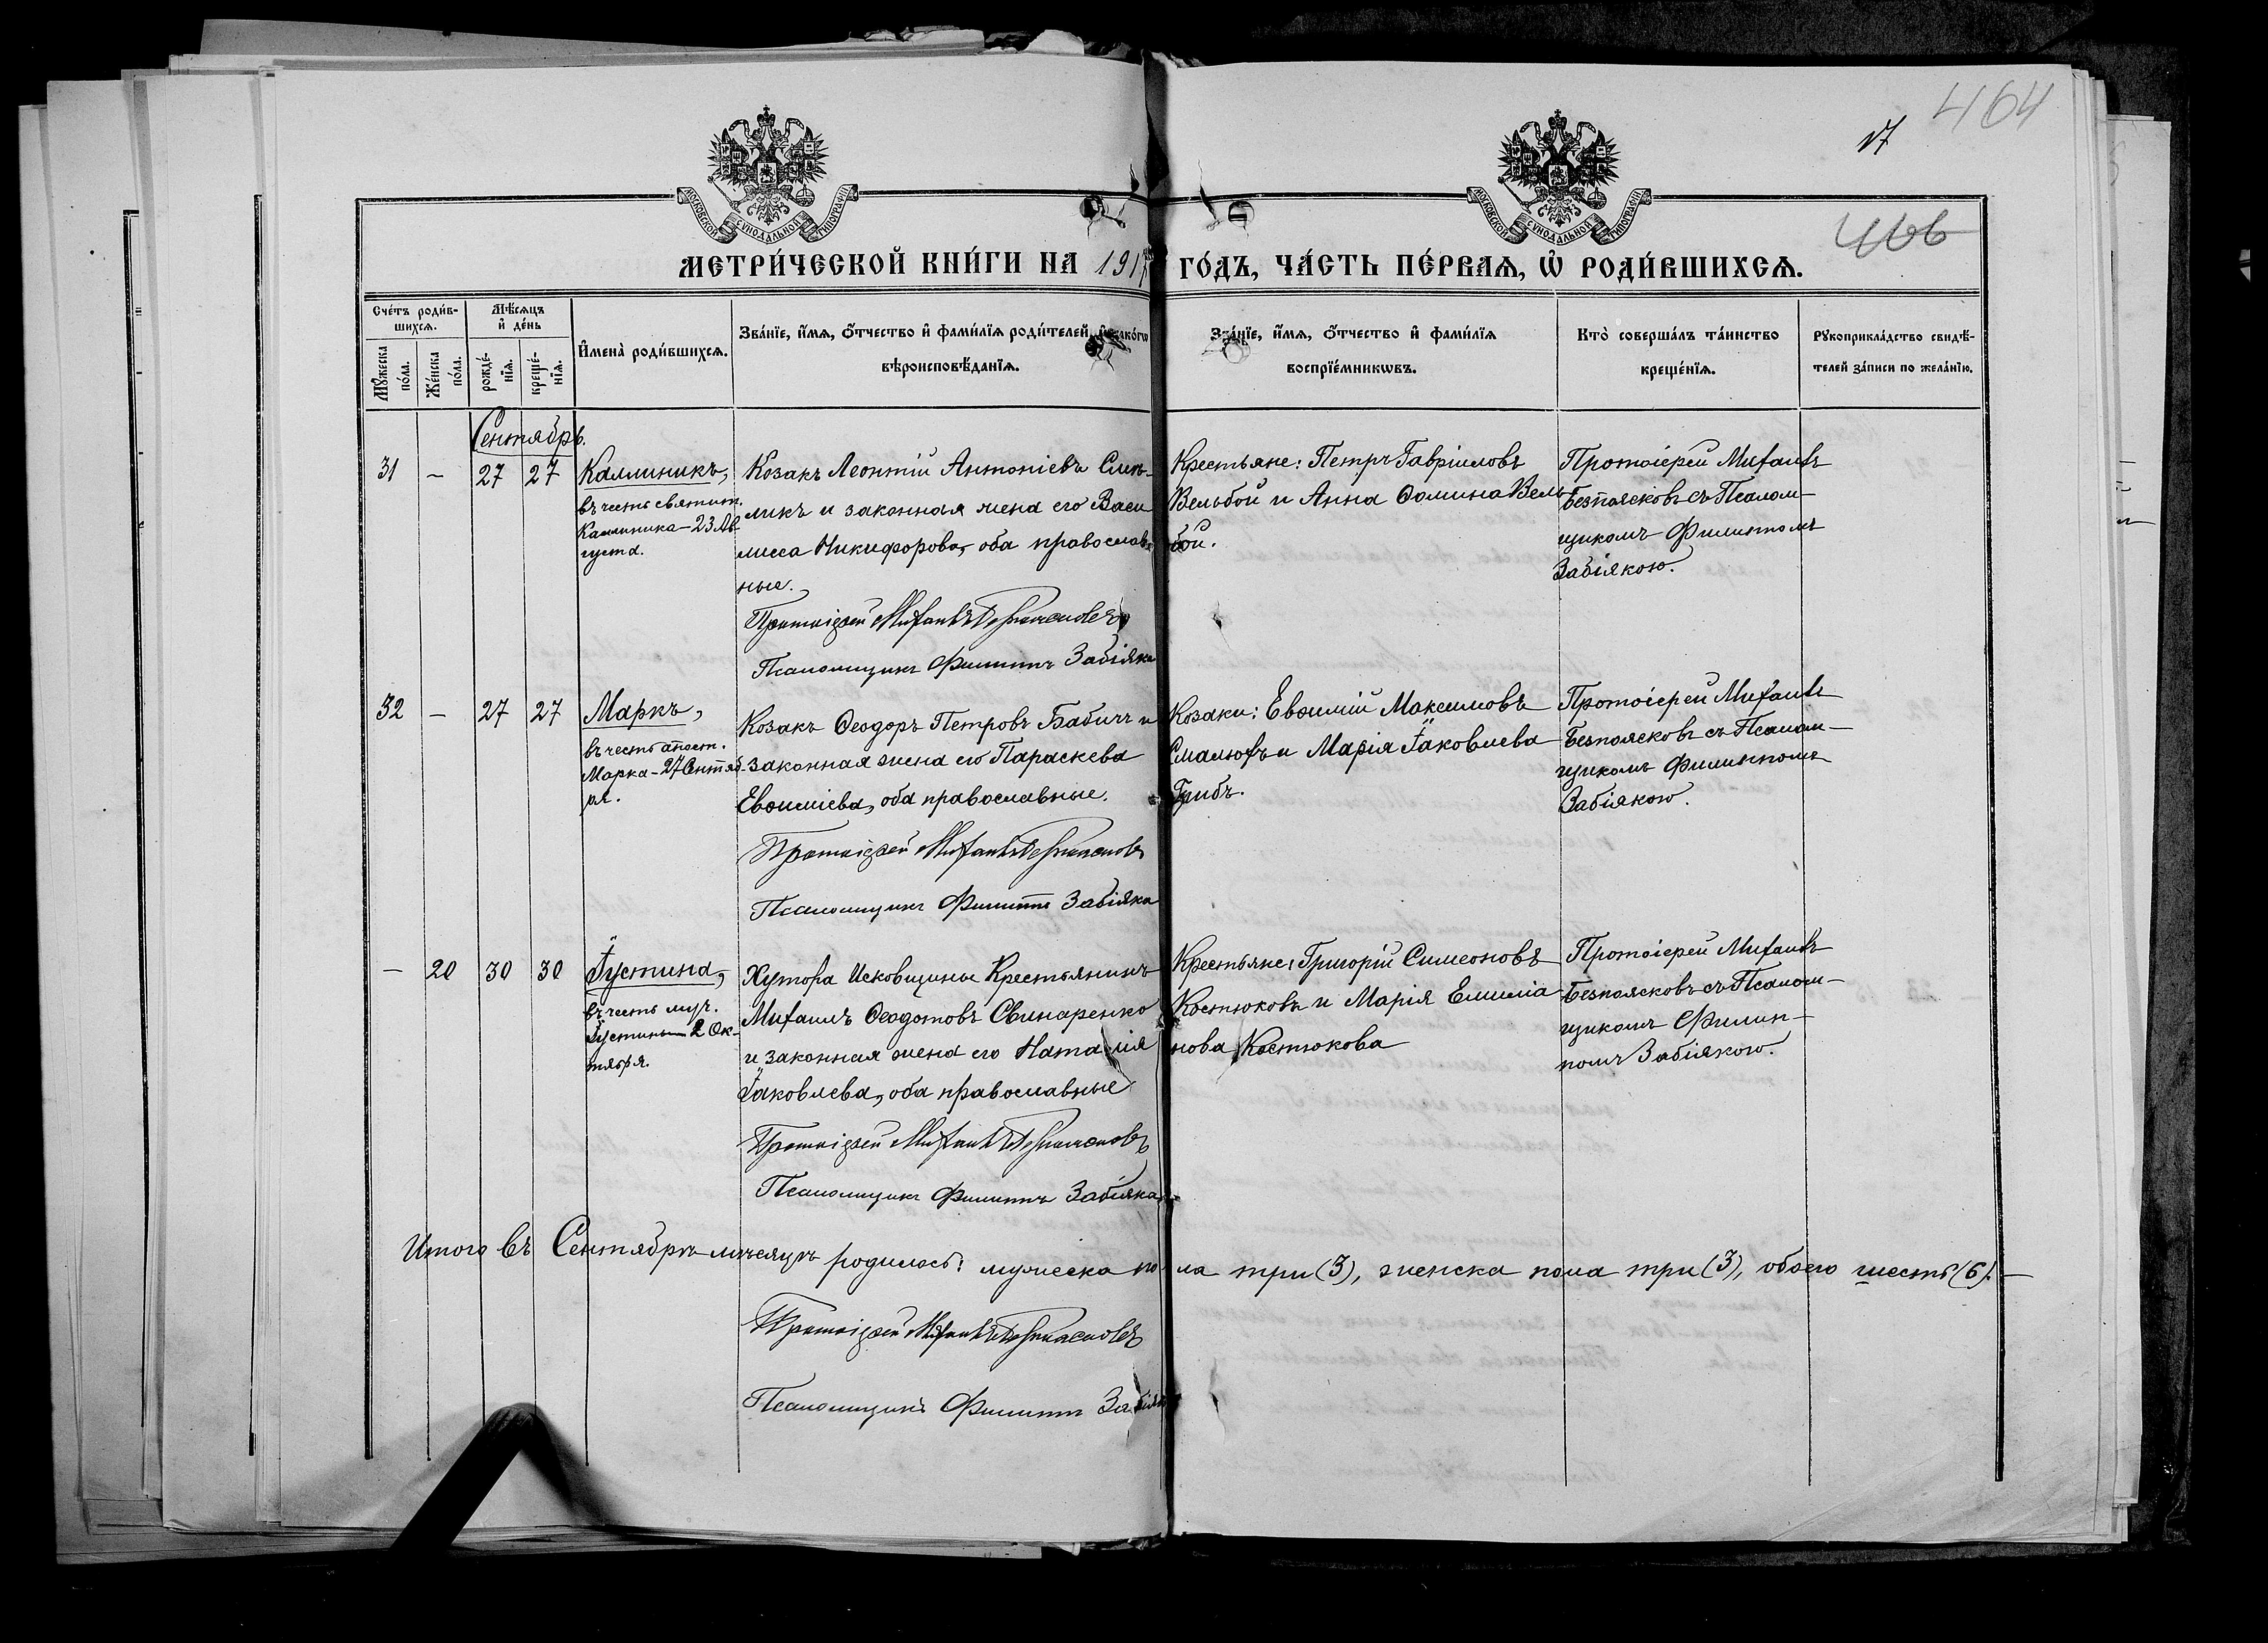 464
17
466
МОСКОВСКОЙ СѴНОДАЛЬНОЙ ТИПОГРАФІИ
МОСКОВСКОЙ СѴНОДАЛЬНОЙ ТИПОГРАФІИ
МЕТРИ́ЧЕСКОЙ КНИ́ГИ НА 191 ГО́ДЪ, ЧА́СТЬ ПЕ́РВАЯ, Ѡ҆ РОДИ́ВШИХСЯ.
Сче́тъ роди́в-
шихся.
Мѣ́сяцъ
и҆ де́нь
Мꙋ́жеска
по́ла.
Же́нска
по́ла.
рожде́-
нїя.
креще́-
нїя.
И҆мена̀ роди́вшихся.
Зва́нїе, и҆́мя, ѻ҆́тчество и҆ фами́лїя роди́телей, и҆ како́гѡ
вѣроисповѣ́данїя.
Зва́нїе, и҆́мя, ѻ҆́тчество и҆ фами́лїя
воспрїе́мникѡвъ.
Кто̀ соверша́лъ та́инство
креще́нїя.
Рꙋкоприкла́дство свидѣ́-
телей за́писи по жела́нїю.
Сентябрь.
31 – 27 27 Каллиникъ,
въ честь святит.
Каллиника – 23 Ав-
густа.
Козакъ Леонтій Антоніевъ Слин-
ликъ и законная жена его Васи
лисса Никифорова, оба православ-
ные.
Протоіерей Михаилъ Безпоясковъ
Псаломщикъ Филиппъ Забіяка
Крестьяне: Петръ Гавріиловъ
Вельбой и Анна Ѳомина Вель
бой.
Протоіерей Михаилъ
Безпоясковъ съ Псалом-
щикомъ Филиппомъ
Забіякою.
32 – 27 27 Маркъ,
въ честь апост.
Марка – 27 Сентяб-
ря.
Козакъ Ѳеодоръ Петровъ Бабичъ и
законная жена его Параскева
Евѳиміева, оба православные.
Протоіерей Михаилъ Безпоясковъ
Псаломщикъ Филиппъ Забіяка
Козаки: Евѳимій Максимовъ
Смалюхъ и Марія Іаковлева
Грибъ.
Протоіерей Михаилъ
Безпоясковъ съ Псалом-
щикомъ Филиппомъ
Забіякою.
– 20 30 30 Іустина,
въ честь муч.
Іустины – 2 Ок-
тября.
Хутора Исковщины Крестьянинъ
Михаилъ Ѳеодотовъ Свинаренко
и законная жена его Наталія
Іаковлева, оба православные
Протоіерей Михаилъ Безпоясковъ
Псаломщикъ Филиппъ Забіяка
Крестьяне: Григорій Симеоновъ
Костюковъ и Марія Емиліа
нова Костюкова
Протоіерей Михаилъ
Безпоясковъ съ Псалом-
щикомъ Филип-
помъ Забіякою.
Итого въ Сентябрѣ мѣсяцѣ родилось: мужеска пола три (3), женска пола три (3), обоего шесть (6). –
Протоіерей Михаилъ Безпоясковъ
Псаломщикъ Филиппъ Забіяка